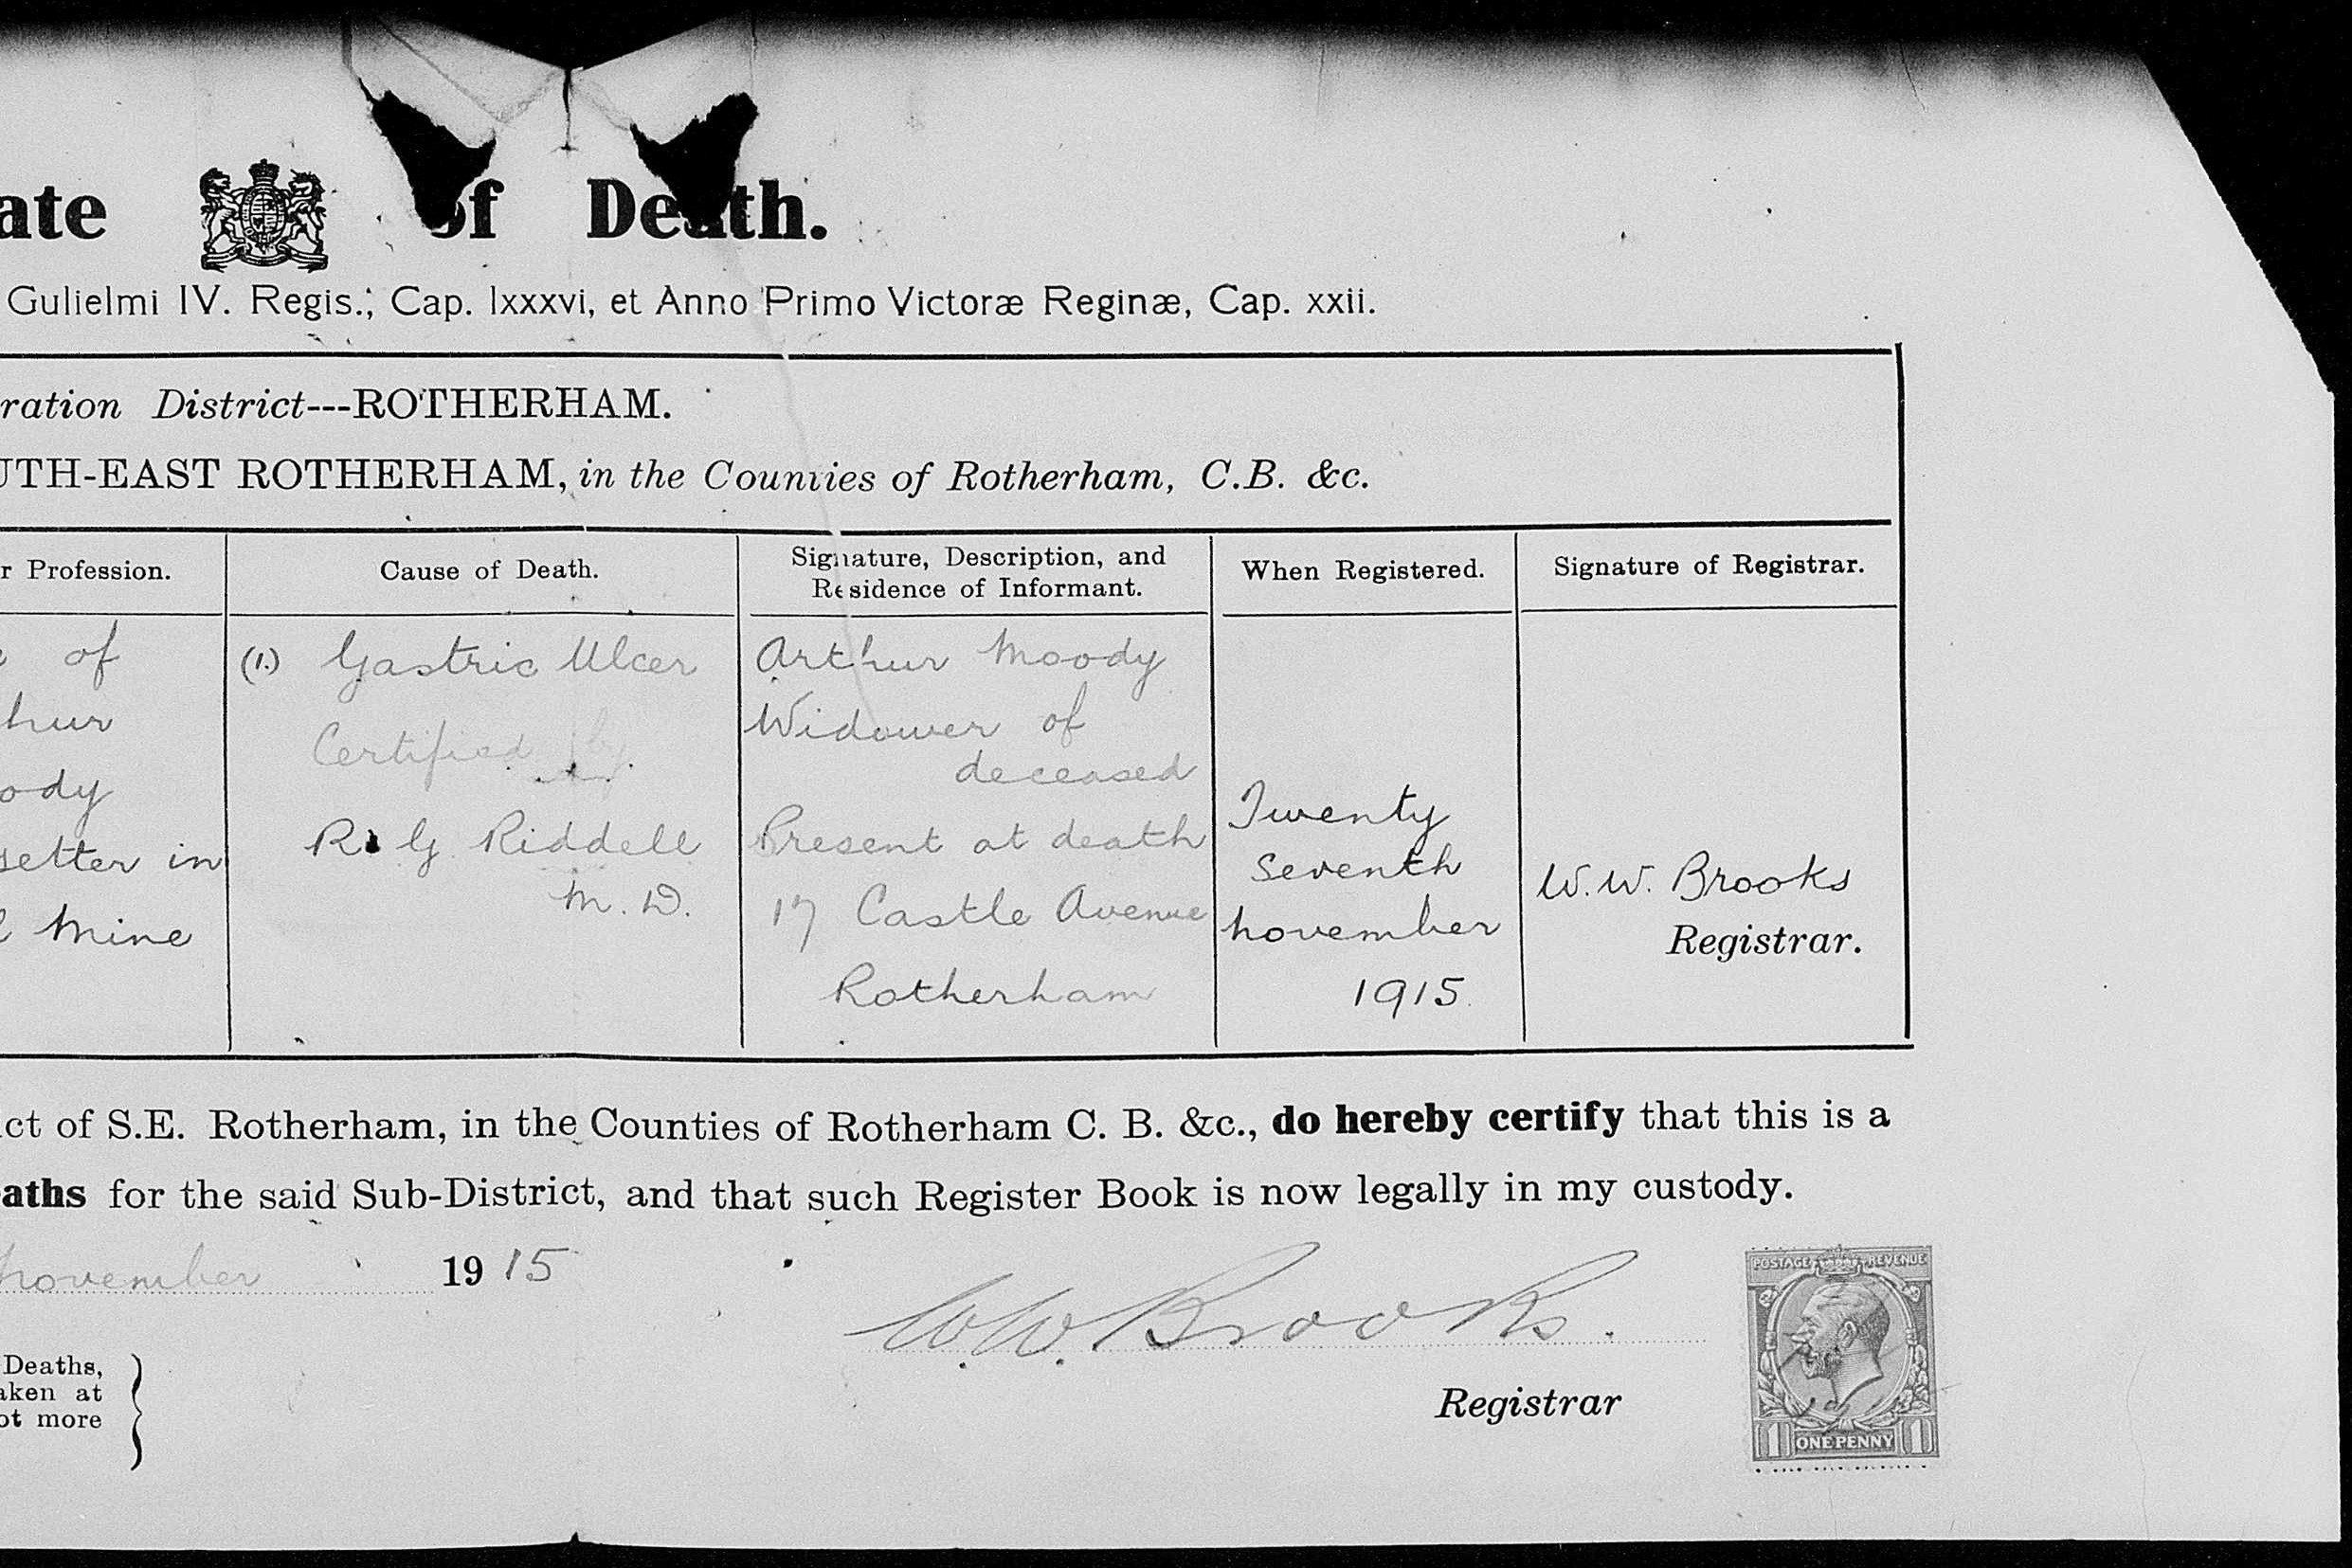 ate of Death.
Gulielmi IV. Regis.; Cap. lxxxvi, et Anno Primo Victoræ Reginæ, Cap. xxii.
ration District---ROTHERHAM.
UTH-EAST ROTHERHAM, in the Counties of Rotherham, C.B. &c.
r Profession.
Cause of Death.
Signature, Description, and
Residence of Informant.
When Registered.
Signature of Registrar.
e of
hur
ody
setter in
l Mine
(1.) Gastric Ulcer
Certified by
R. G Riddell
M.D.
Arthur Moody
Widower of
deceased
Present at death
17 Castle Avenue
Rotherham
Twenty
Seventh
November
1915.
W.W. Brooks
Registrar.
ict of S.E. Rotherham, in the Counties of Rotherham C. B. &c., do hereby certify that this is a
aths for the said Sub-District, and that such Register Book is now legally in my custody.
November 1915
W.W. Brooks.
Registrar
Deaths,
aken at
ot more
POSTAGE REVENUE
1 ONE PENNY 1